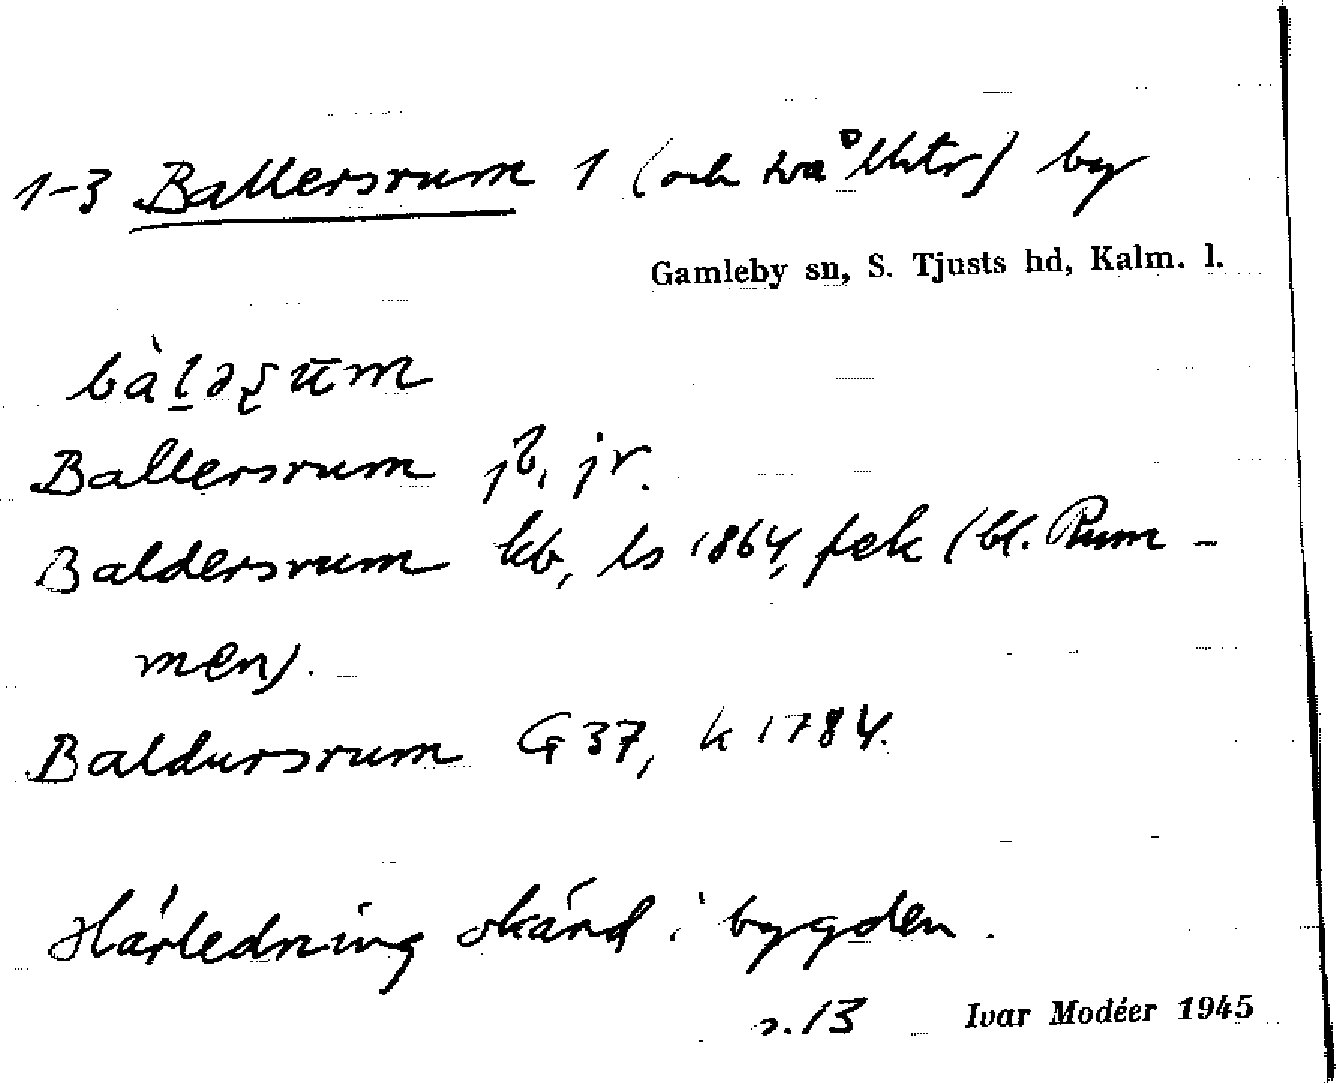 1-3 Ballersrum 1 (och två lhtr) by
Gamleby sn, S. Tjusts hd, Kalm. l.
Ballersrum jb, jr.
Baldersrum kb, ls 1864, fek (bl. Rum-
men).
Baldursrum G 37, k 1784.
Härledning okänd i bygden.
s. 13 Ivar Modéer 1945